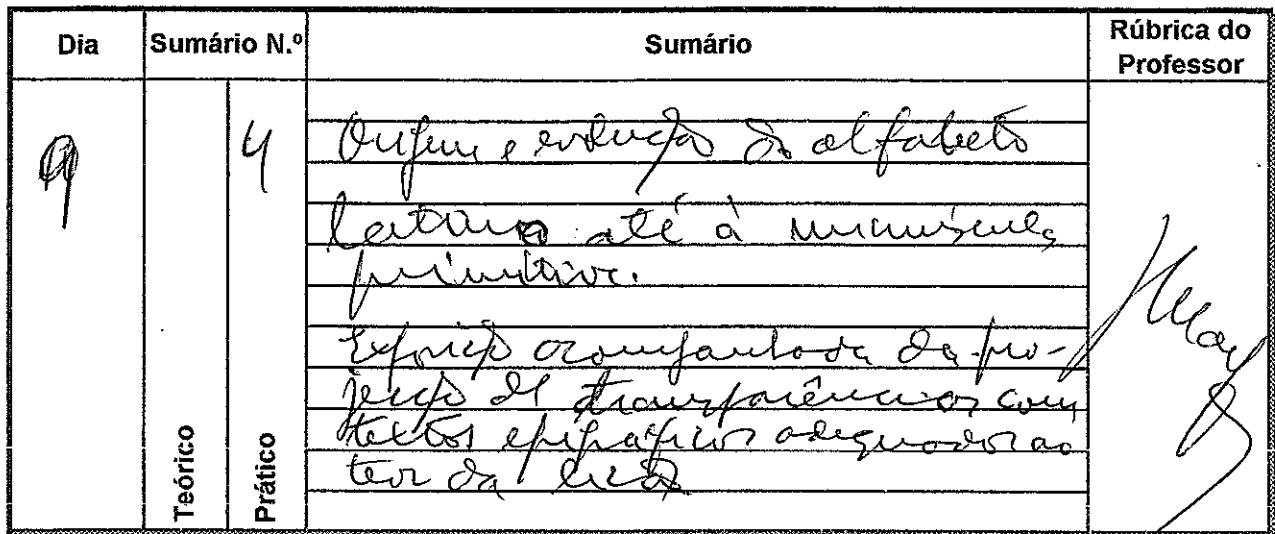 Dia Sumário N.º Sumário Rúbrica do Professor
9 4 Origem e evolução do alfabeto
latino até à minúscula
primitiva.
Exposição acompanhada da pro-
jecção de transparências com
textos epigráficos adequados ao
teor da lição
Teórico
Prático